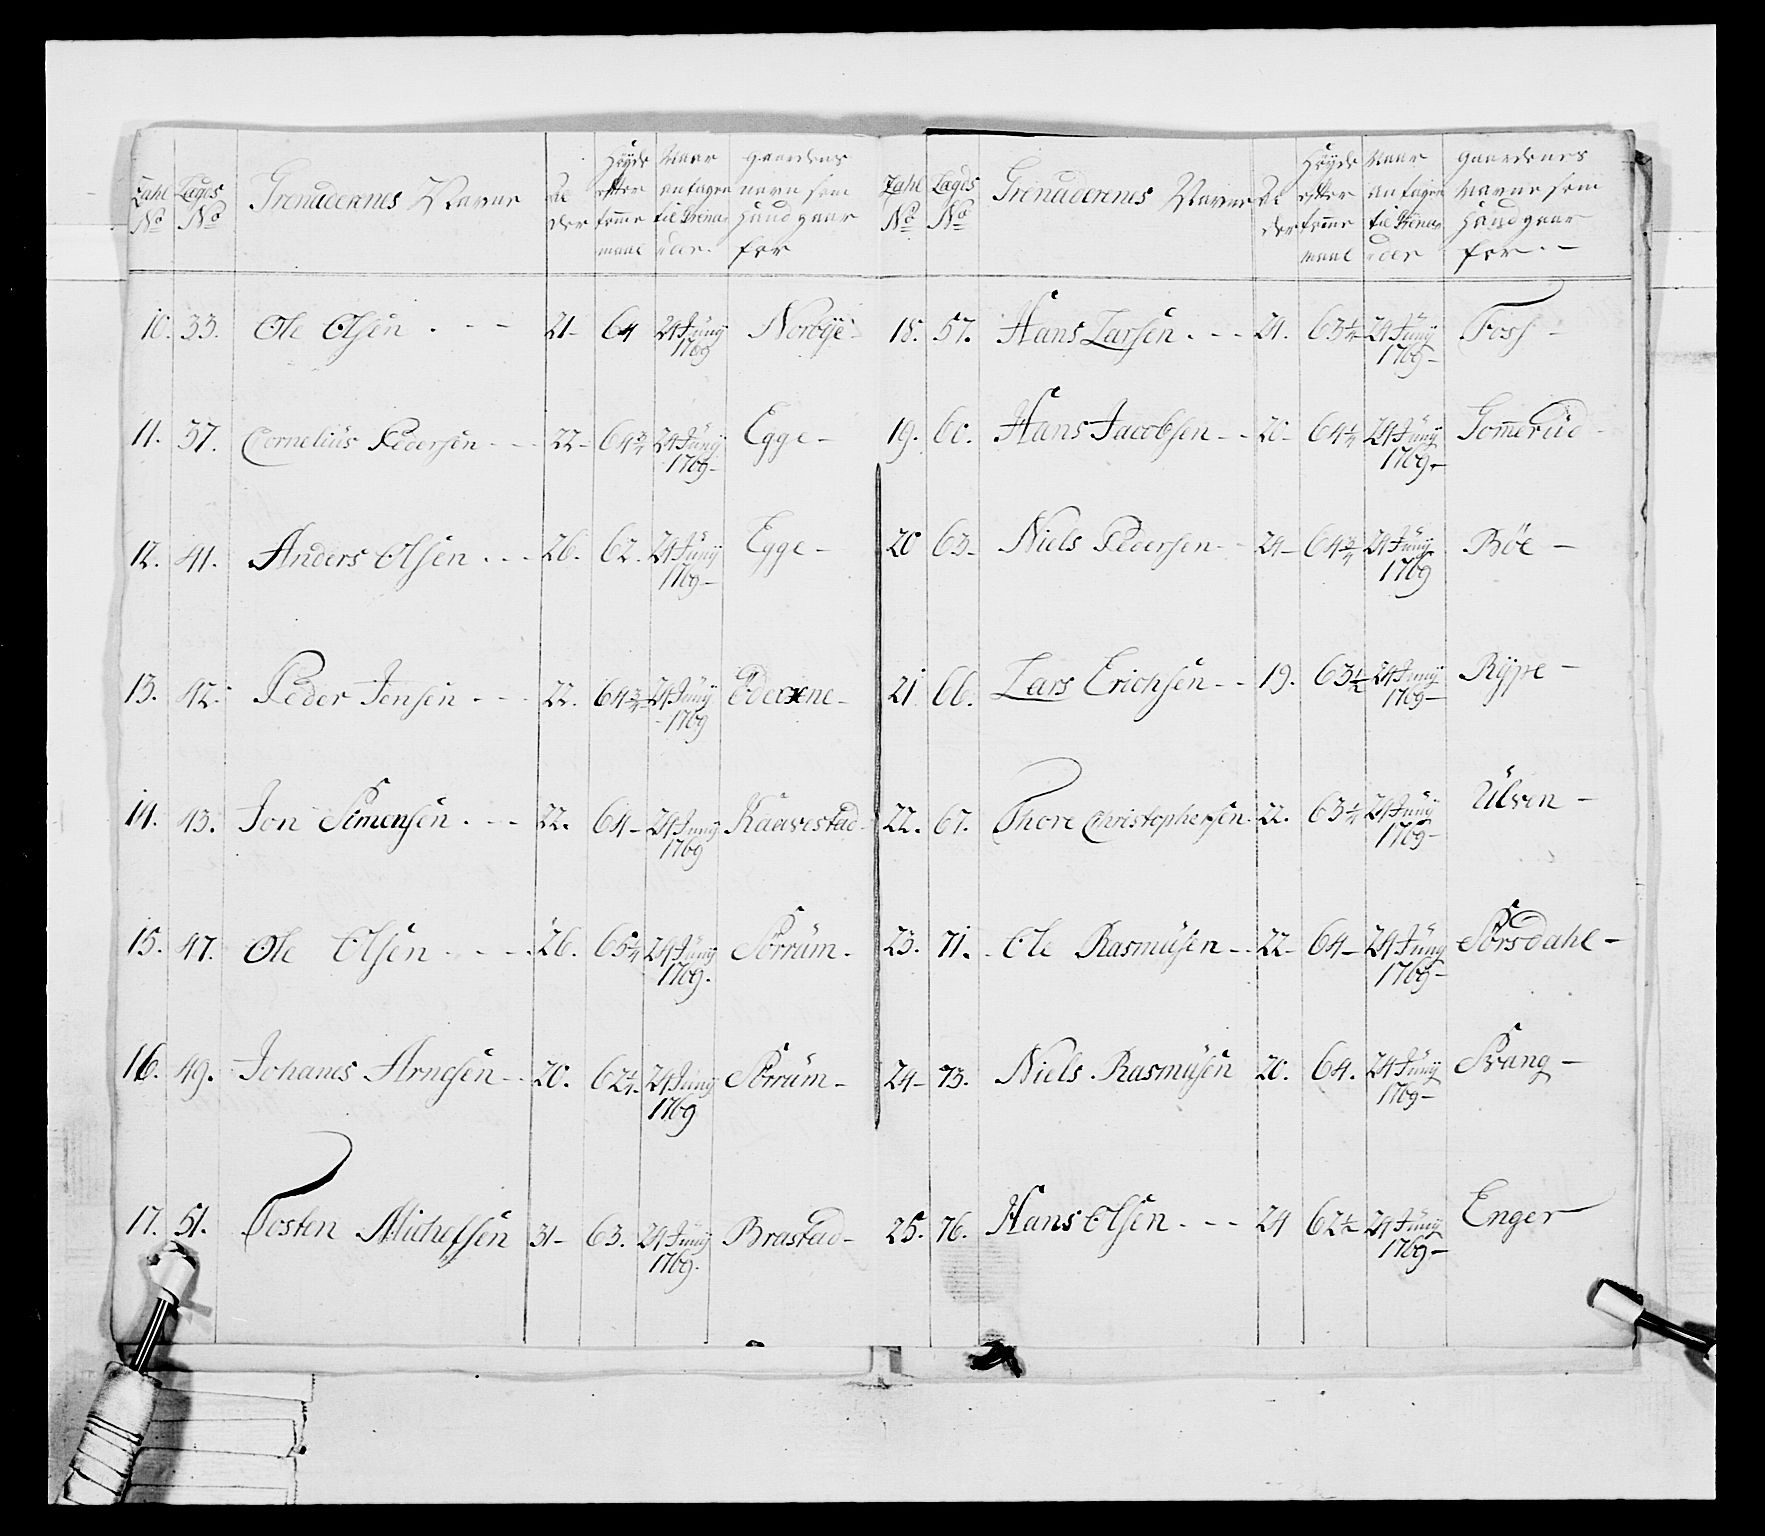 Zahl No Lagds No Grenaderernes Navne Al der Höyde efter tomme maal Naar antagen til Grena- deer. gaardens navn som hand gaar for
10. 33. Ole Olsen . - - 21- 64 24 Juny 1769 Norbÿe-
11. 37. Cornelius Pedersen - - - 22- 64 3/4 24 Juny 1769- Egge-
12. 41. Anders Olsen . - - 26. 62. 24 Juny 1769- Egge-
13. 42. Peder Jensen - - - 22. 64 3/4 24 Juny 1769
14. 43. Jon Simensen . - - 22. 64- 24 Juny 1769 Kaavestad-
15. 47. Ole Olsen - - - 26. 65 1/4 24 Juny 1769. Sörrum.
16. 49. Johanes Arnesen - - 20. 62 1/4. 24 Juny 1769 Sörrum-
17. 51. Tosten Michelsen 31- 63. 24 Juny 1769. Brastad-
Zahl No Lagds No Grenaderenes Navne Al der Höyde efter tomme maal Naar antagen til Grena- deer gaardenes Navne som hand gaar for. -
18. 57. Hans Larsen . - - 21. 63 1/4- 24 Juny 1769- Foss-
19. 60. Hans Jacobsen - - 20- 64 1/4 24 Juny 1769- Gomerud-
20 63- Niels Pedersen - - 24- 64 3/4 24 Juny 1769 Böe-
21 66. Lars Erichsen - - 19. 63 1/2 24 Juny 1769- Rÿpe-
22. 67. Thore Christophersen 22. 63 1/4 24 Juny 1769- Ulven-
23. 71. Ole Rasmusen - - 22- 64- 24 Juny 1769- Sörsdahl-
24- 73. Niels Rasmusen 20. 64. 24 Juny 1769- Svang-
25. 76. Hans Olsen . - - 24 62 1/2 24 Juny 1769- Enger